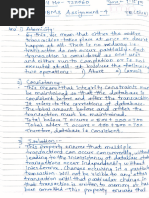 Assignment - 4
Ans 1) Atomicity
By this, we mean that either the entire
transaction takes place at once or doesn't
happen at all. There is no midway i.e.
transaction do not occur partially. Each
transaction is considered as one unit and
either runs to completion or is not
executed at all. It involves the following
two operations. 1) Abort 2) Commit
2) Consistency :
This means that integrity constraints must
be maintained so that the database is
consistent before and after the transaction.
It refers to the correctness of database.
The total amount before and after the
transaction must be maintained.
Total before T occurs = 500 + 200 = 700
Total after T occurs = 400 + 300 = 700
Therefore, database is consistent.
3) Isolation :
This property ensures that multiple
transactions can occur concurrently without
leading to the inconsistency of database
state. Transactions occur independently without
interference. Changes occurring in a particular
transaction will not be visible to any other
transaction until that particular change in
that transaction is written to memory or has
been committed. This property ensures that